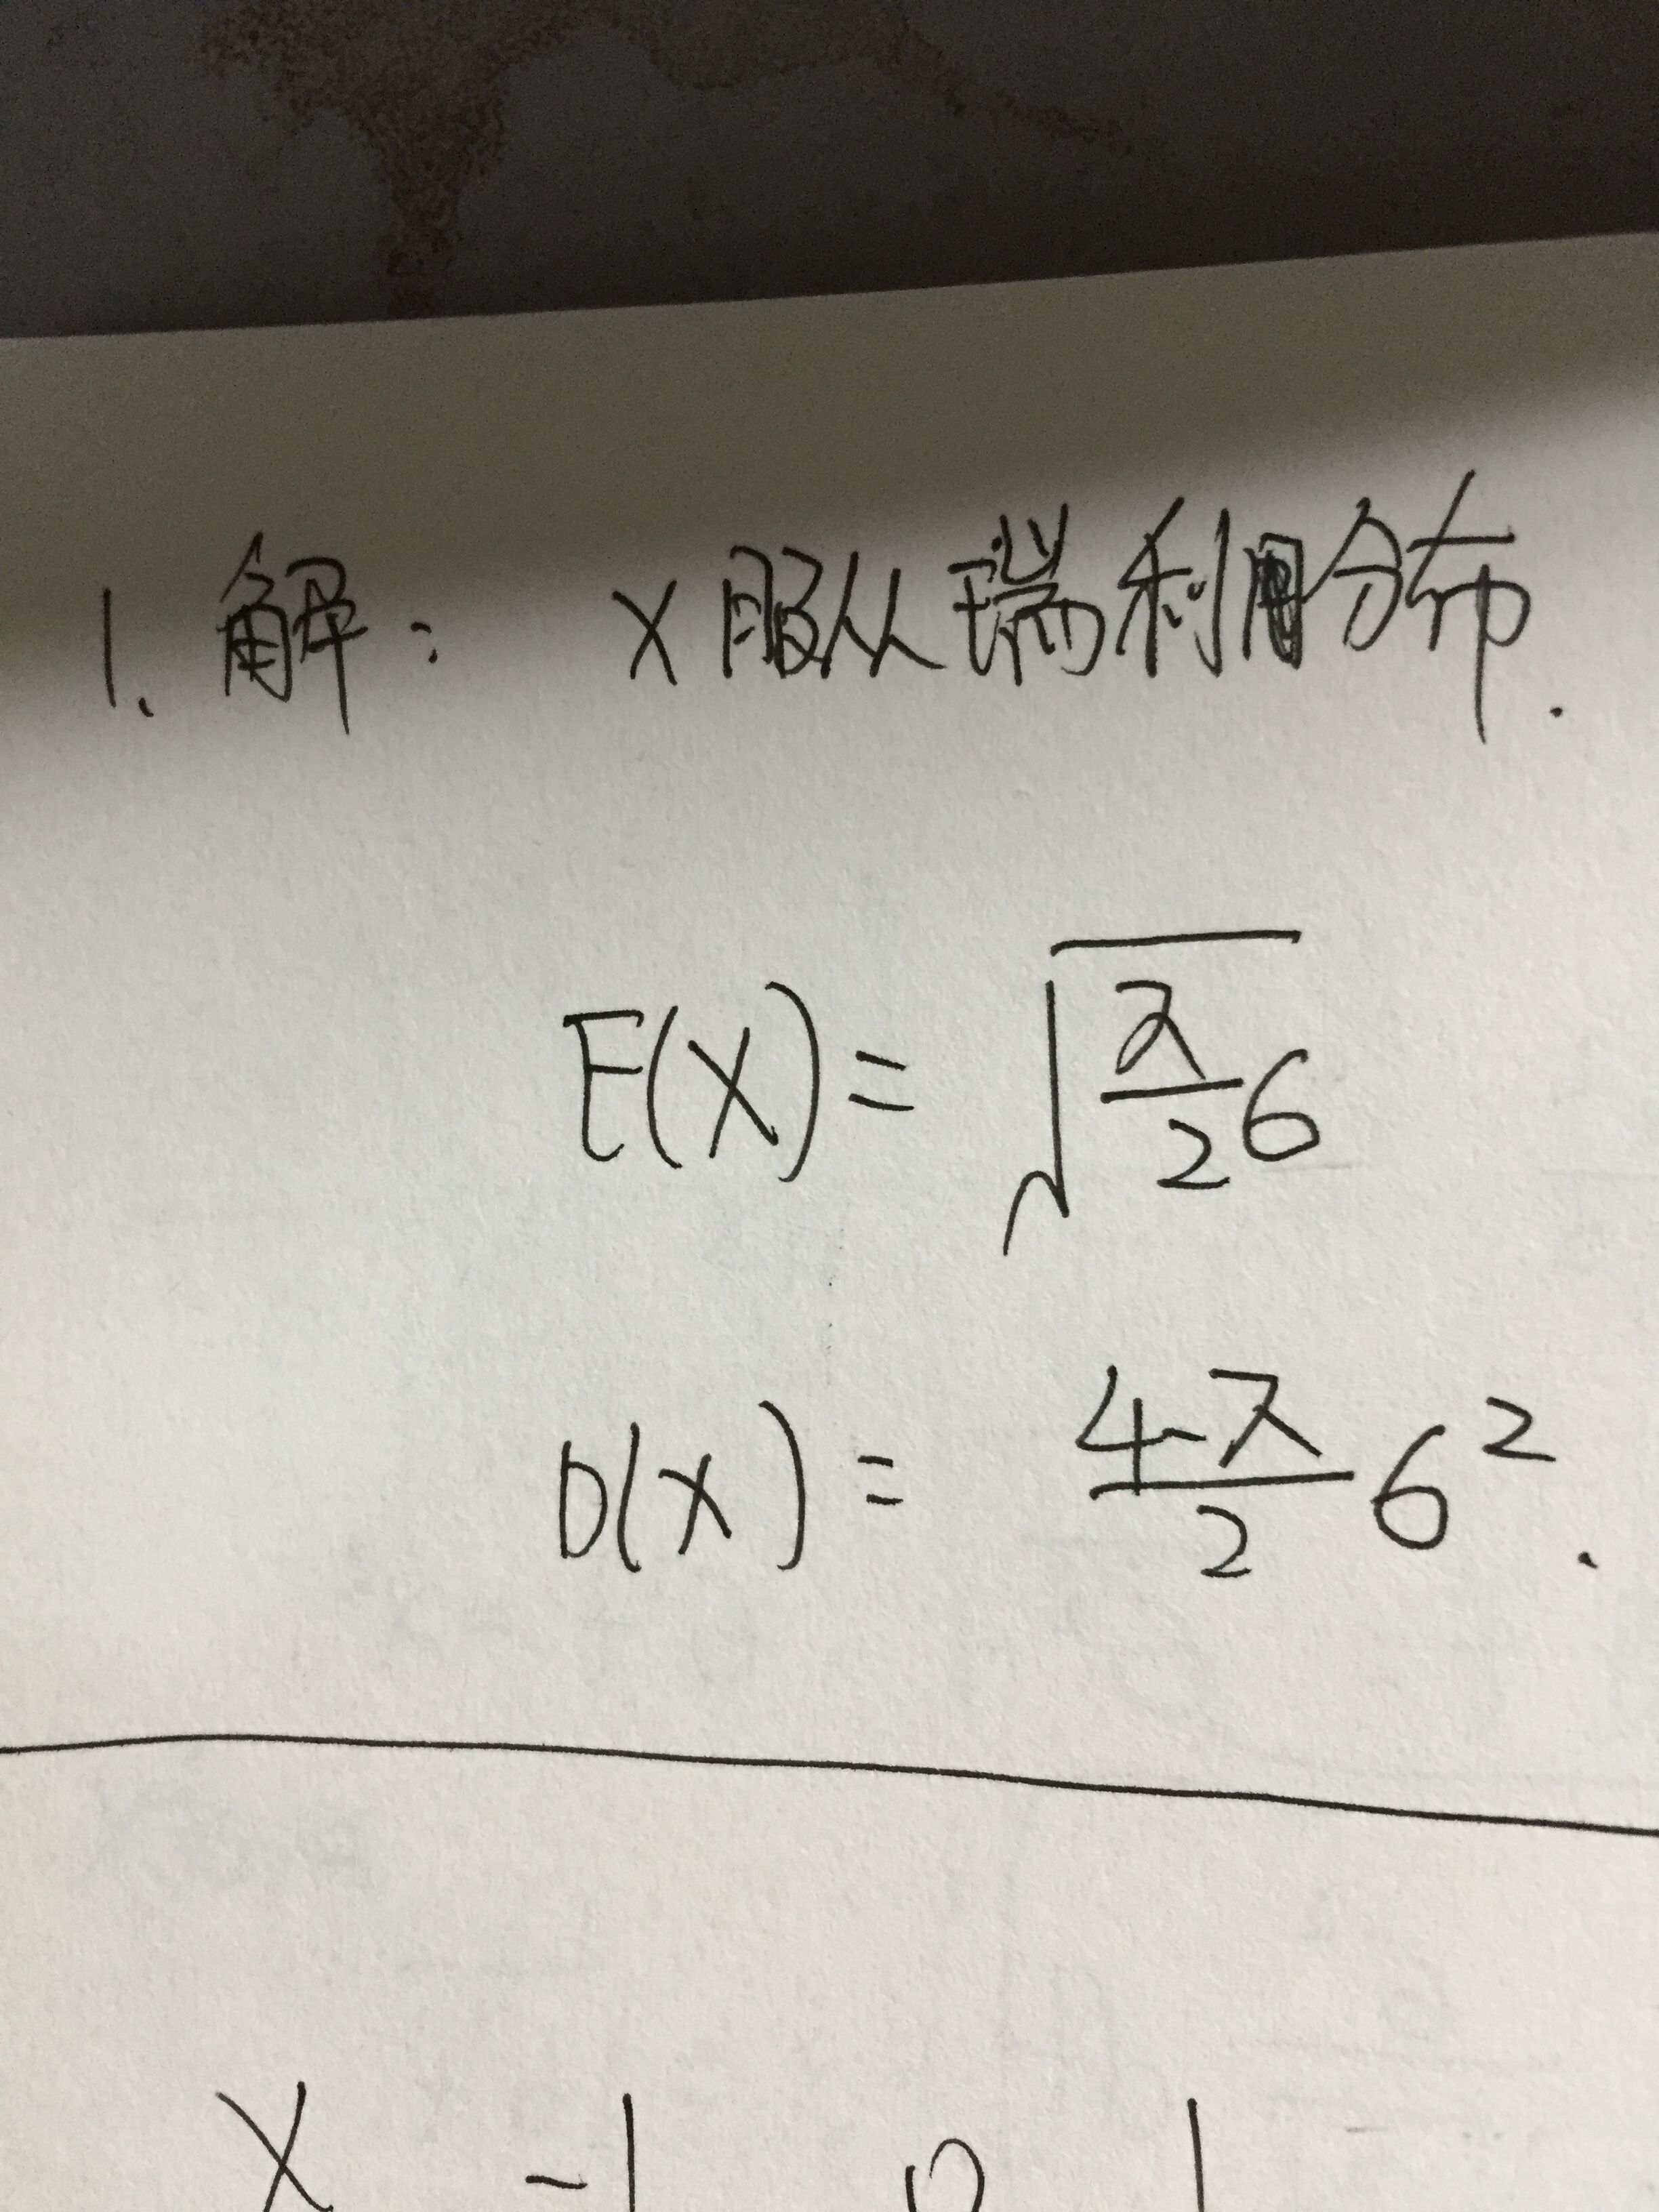 1. 解: X服从瑞利分布.
E(X)=√(π/2 σ)
D(X)= (4-π)/2 σ².
X -1 0 1